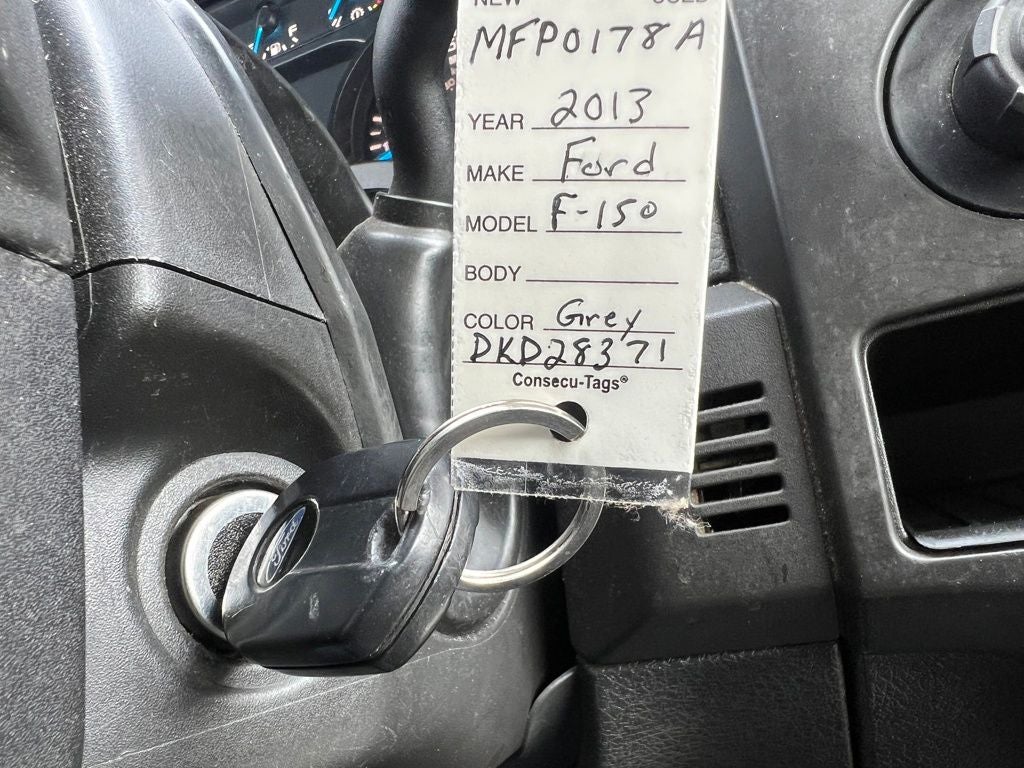 NEW USED
MFP0178A
YEAR 2013
MAKE Ford
MODEL F-150
BODY
COLOR Grey
DKD28371
Consecu-Tags®
Ford
F